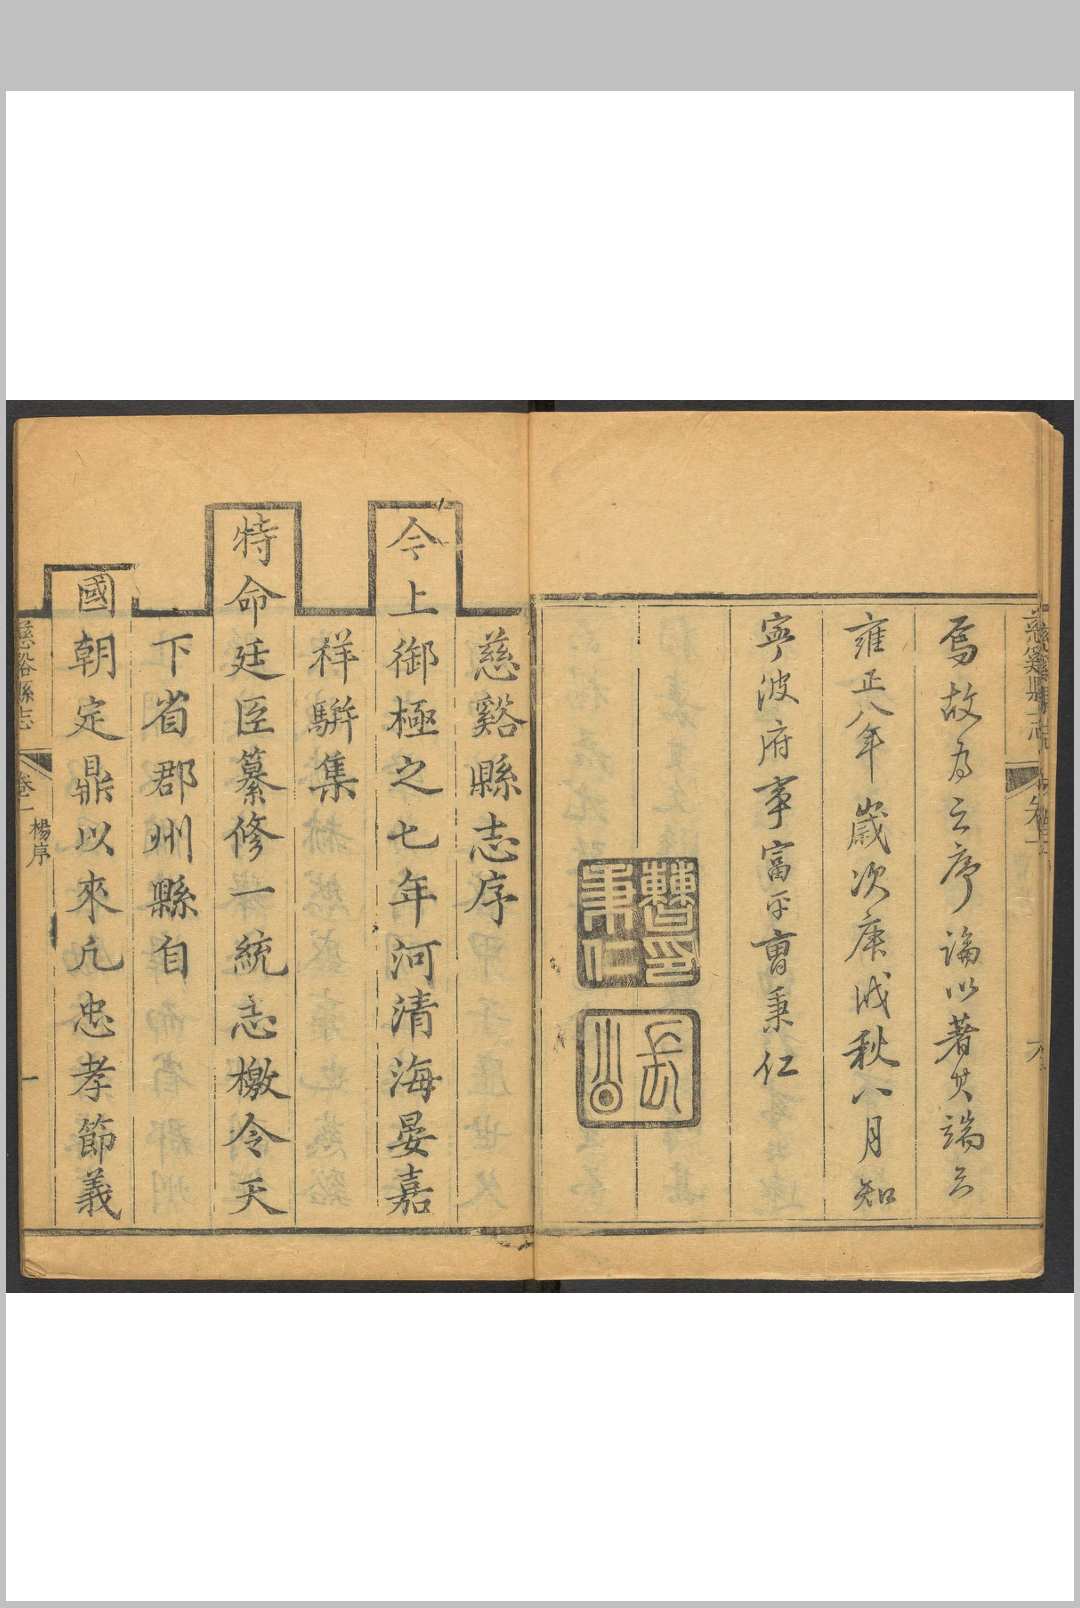 焉故為之序論以著其端云
雍正八年歲次庚戌秋八月知
寧波府事富平曹秉仁
慈谿縣志序
今上御極之七年河清海晏嘉
祥駢集
特命廷臣纂修一統志檄令天
下省郡州縣自
國朝定鼎以來凡忠孝節義
慈谿縣志
卷一
楊序
一